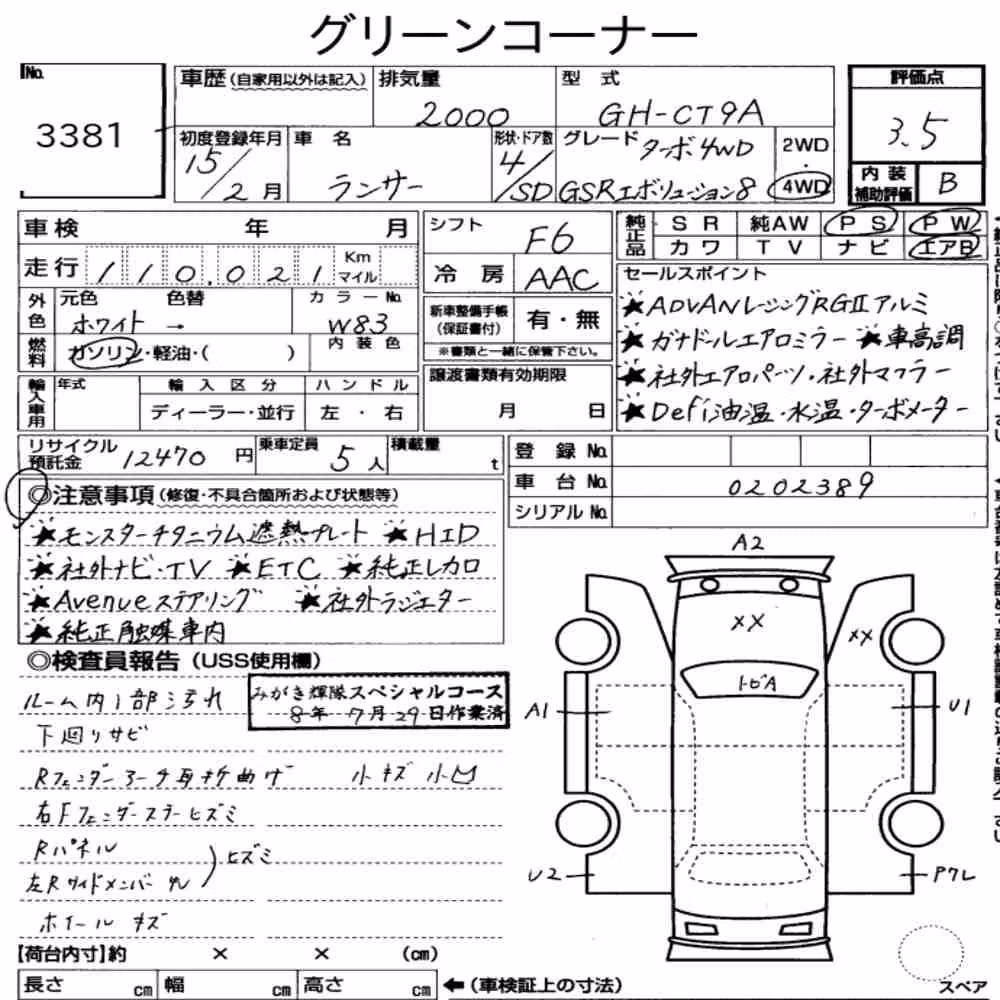 グリーンコーナー
No.
3381
車歴(自家用以外は記入)
排気量
2000
型式
GH-CT9A
評価点
3.5
初度登録年月
15/2月
車名
ランサー
形状・ドア数
4/SD
グレード
ターボ4WD
GSRエボリューション8
2WD
・
4WD
内装
補助評価
B
車検 年 月
走行 110,021 Km マイル
シフト
F6
冷房
AAC
純正品
SR 純AW PS PW
カワ TV ナビ エアB
外色
元色 色替 カラーNo.
ホワイト → W83
燃料
ガソリン・軽油・( )
内装色
新車整備手帳
(保証書付)
有・無
※書類と一緒に保管下さい。
セールスポイント
★ADVANレーシングRGIIアルミ
★ガナドールエアロミラー ★車高調
★社外エアロパーツ・社外マフラー
★Defi油温・水温・ターボメーター
輸入車用
年式 輸入区分 ハンドル
ディーラー・並行 左・右
譲渡書類有効期限
月 日
リサイクル
預託金
12470円
乗車定員
5人
積載量
t
登録No.
車台No. 0202389
シリアルNo.
◎注意事項(修復・不具合箇所および状態等)
★モンスターチタニウム遮熱プレート ★HID
★社外ナビ・TV ★ETC ★純正レカロ
★Avenueステアリング ★社外ラジエター
★純正触媒車内
◎検査員報告(USS使用欄)
ルーム内1部汚れ
みがき輝隊スペシャルコース
8年 7月29日作業済
下廻りサビ
Rフェンダーアーチ耳折曲げ 小キズ 小凹
右Fフェンダーステーヒズミ
Rパネル
左Rサイドメンバー
ヒズミ
ホイールキズ
A2
XX
XX
トビA
A1
U1
U2
Pワレ
スペア
【荷台内寸】約 × × (cm)
長さ cm 幅 cm 高さ cm
←(車検証上の寸法)